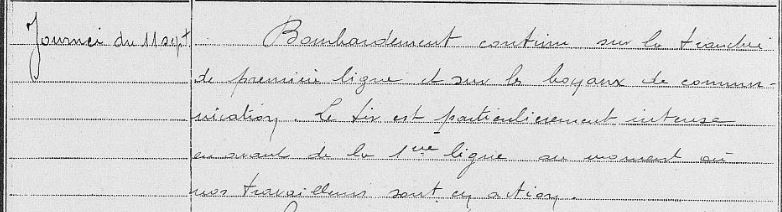 Journée du 11 sept. Bombardement continu sur la tranchée
de première ligne et sur les boyaux de commu-
nication. Le tir est particulièrement intense
en avant de la 1ère ligne au moment où
nos travailleurs sont en action.